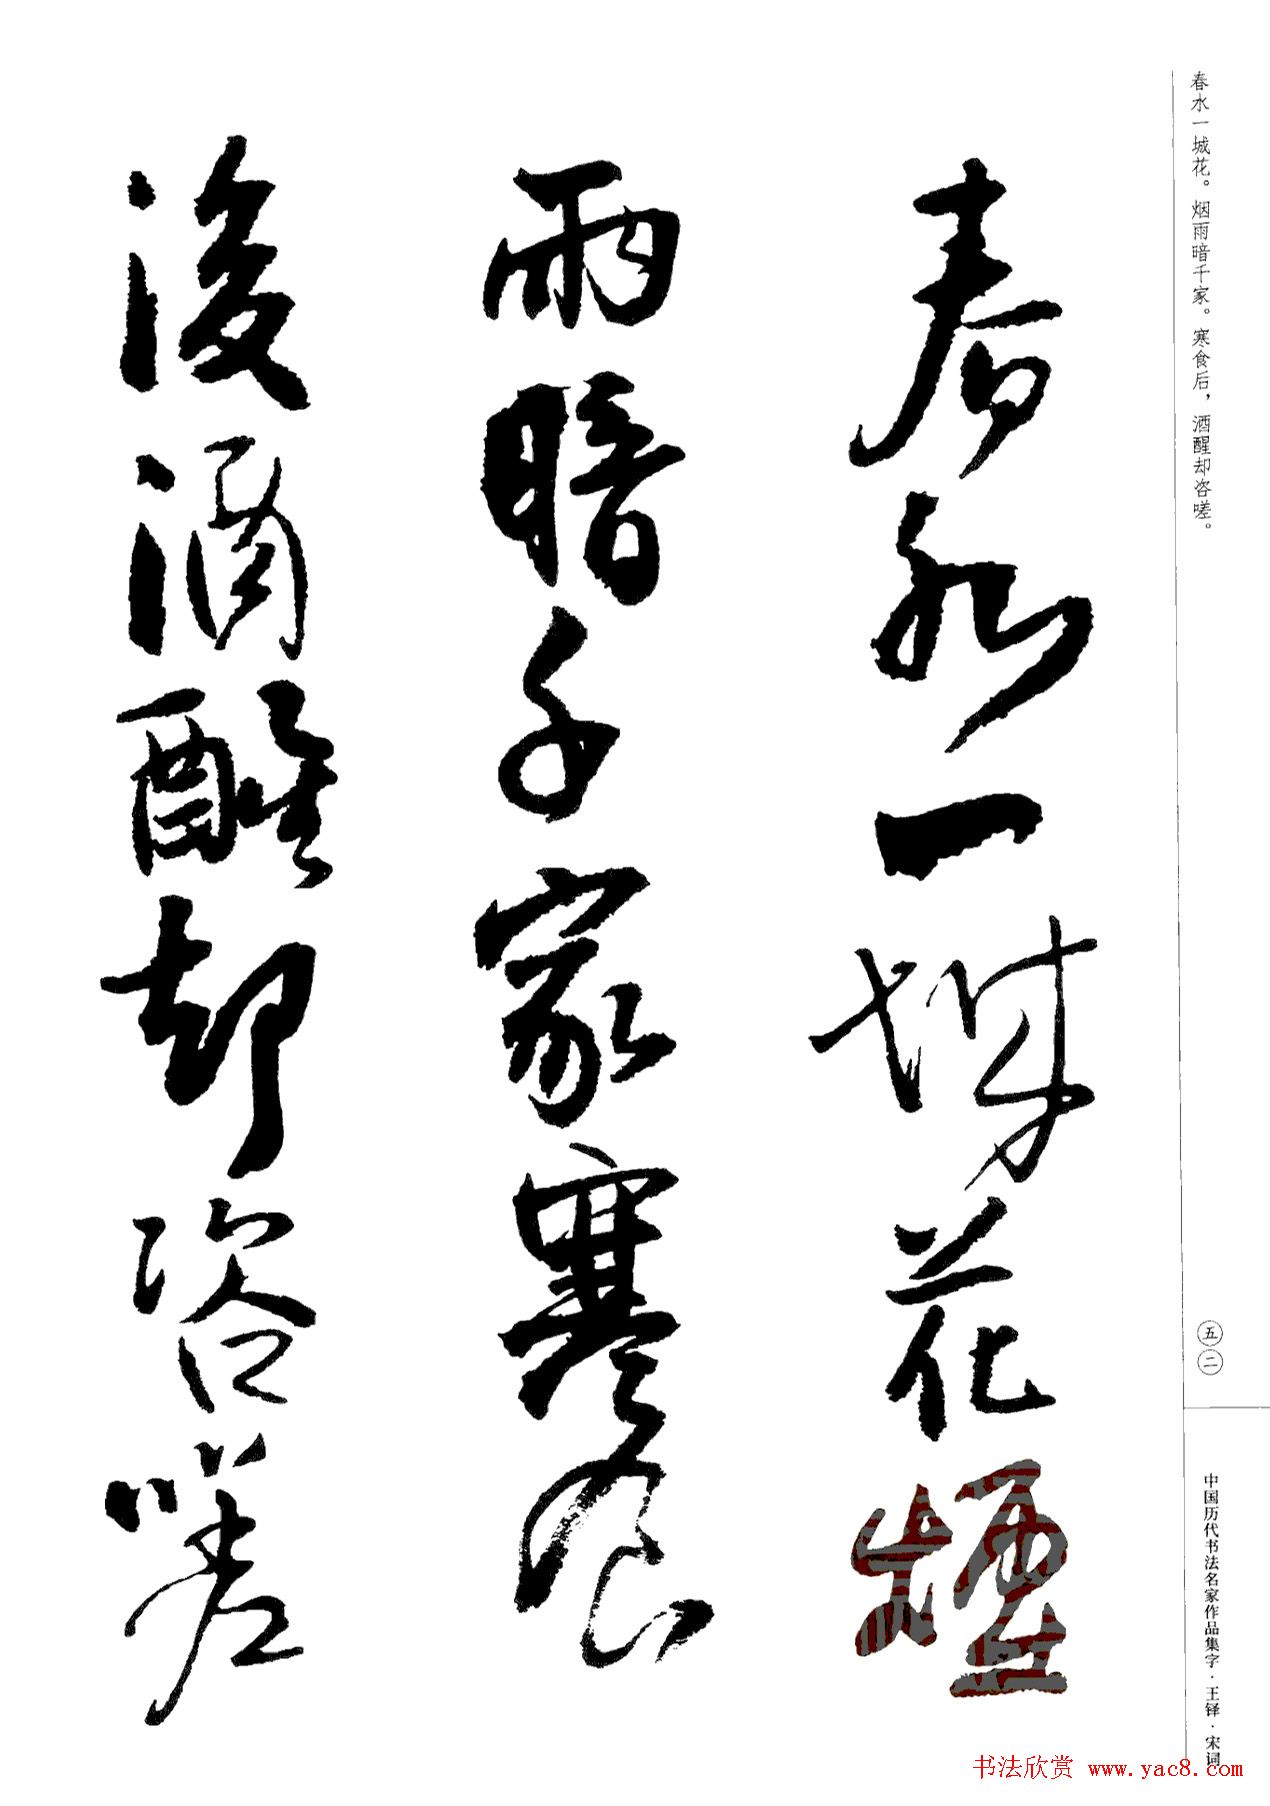 春水一城花。烟雨暗千家。寒食后，酒醒却咨嗟。
春水一城花煙
雨暗千家寒食
後酒醒却咨嗟
五二
中国历代书法名家作品集字·王铎·宋词
书法欣赏 www.yac8.com